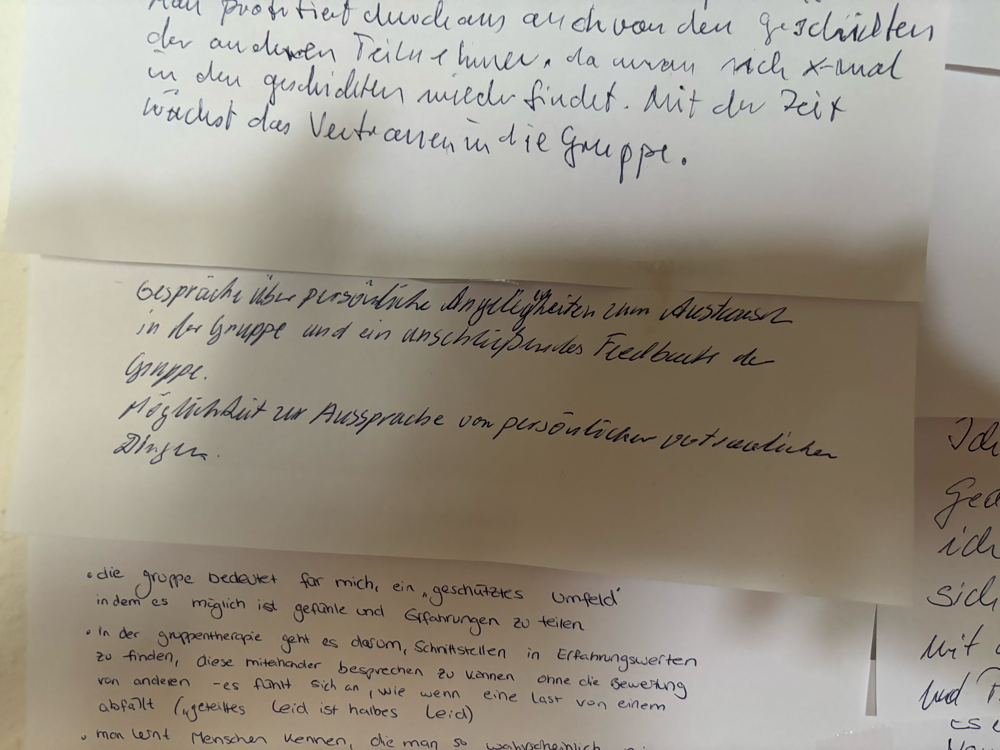 Man profitiert durchaus auch von den geschichten
der anderen Teilnehmer, da man sich x-mal
in den geschichten wiederfindet. Mit der Zeit
wächst das Vertrauen in die Gruppe.
Gespräche über persönliche Angelegenheiten zum Austausch
in der Gruppe und ein anschließendes Feedback der
Gruppe.
Möglichkeit zur Aussprache von persönlichen vertraulichen
Dingen.
• die gruppe bedeutet für mich, ein „geschütztes Umfeld"
in dem es möglich ist gefühle und Erfahrungen zu teilen
• In der gruppentherapie geht es darum, Schnittstellen in Erfahrungswerten
zu finden, diese miteinander besprechen zu können ohne die Bewertung
von anderen - es fühlt sich an, wie wenn eine Last von einem
abfällt („geteiltes Leid ist halbes Leid)
• man lernt Menschen kennen, die man so wahrscheinlich
Ich
ich
sich
Mit
und
es